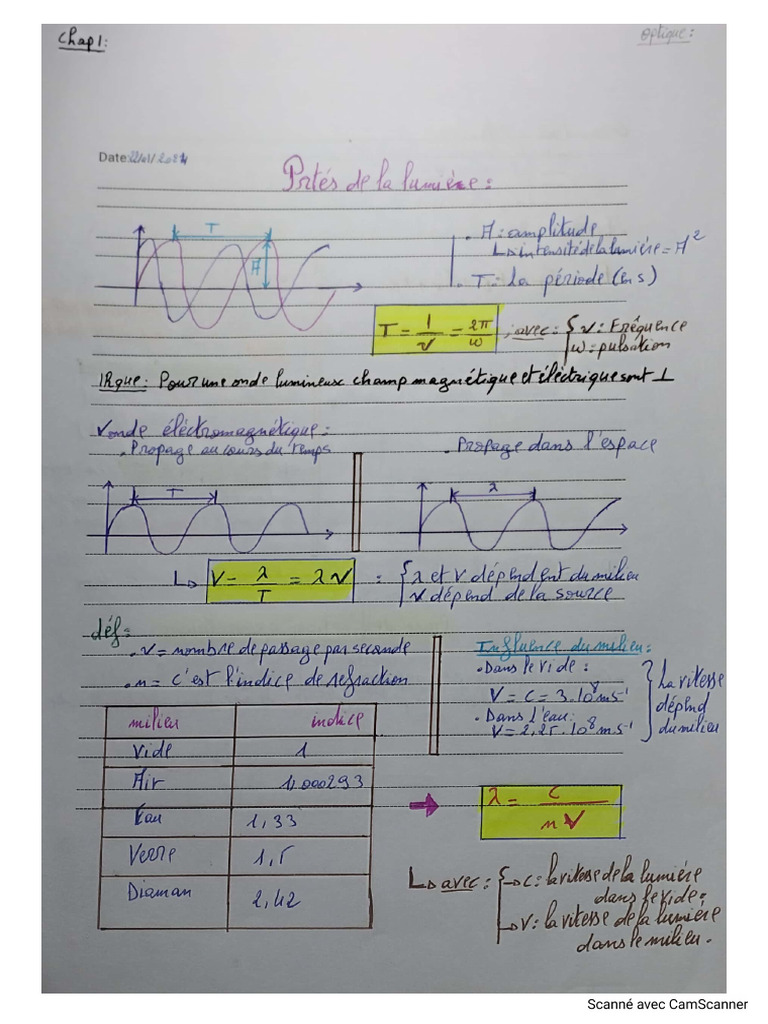 Chap1:
Optique:
Date:22/01/2024
Prtés de la lumière:
T
A
. A: amplitude
↳ intensité de la lumière = A²
. T: la période (en s)
T = 1/ν = 2π/ω ; avec: { ν: Fréquence
ω = pulsation
1Rque: Pour une onde lumineux champ magnétique et éléctrique sont ⊥
Vonde éléctromagnétique:
. Propage au cours du temps
. Propage dans l'espace
T
λ
↳ V = λ/T = λν : { λ et V dépendent du milieu
ν dépend de la source
déf:
. ν = nombre de passage par seconde
. n = c'est l'indice de refraction
Influence du milieu:
. Dans le vide:
V = C = 3.10⁸ ms⁻¹
. Dans l'eau:
V = 2,25.10⁸ ms⁻¹
} La vitesse
dépend
du milieu
milieu indice
Vide 1
Air 1,000293
Eau 1,33
Verre 1,5
Diaman 2,42
➡ λ = C/nν
↳ avec: { → C: la vitesse de la lumière
dans le vide.
→ V: la vitesse de la lumière
dans le milieu.
Scanné avec CamScanner